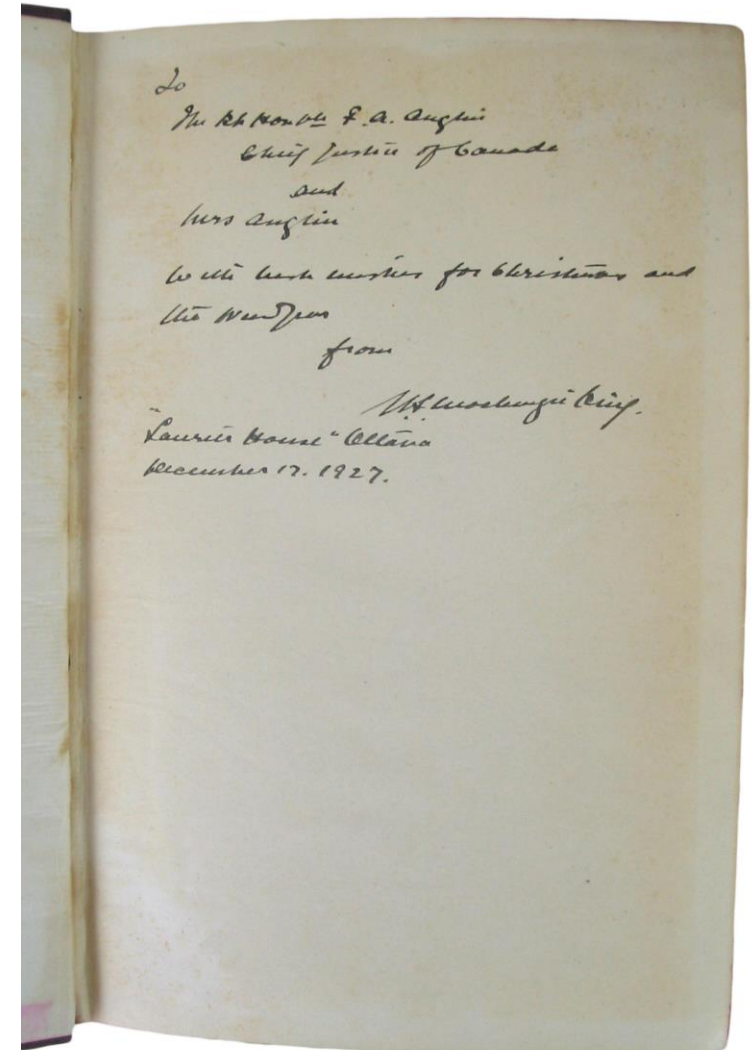 To
The Rt Honble F. A. Anglin
Chief Justice of Canada
and
Mrs Anglin
With best wishes for Christmas and
the New Year
from
W.L. Mackenzie King.
"Laurier House" Ottawa
December 17. 1927.